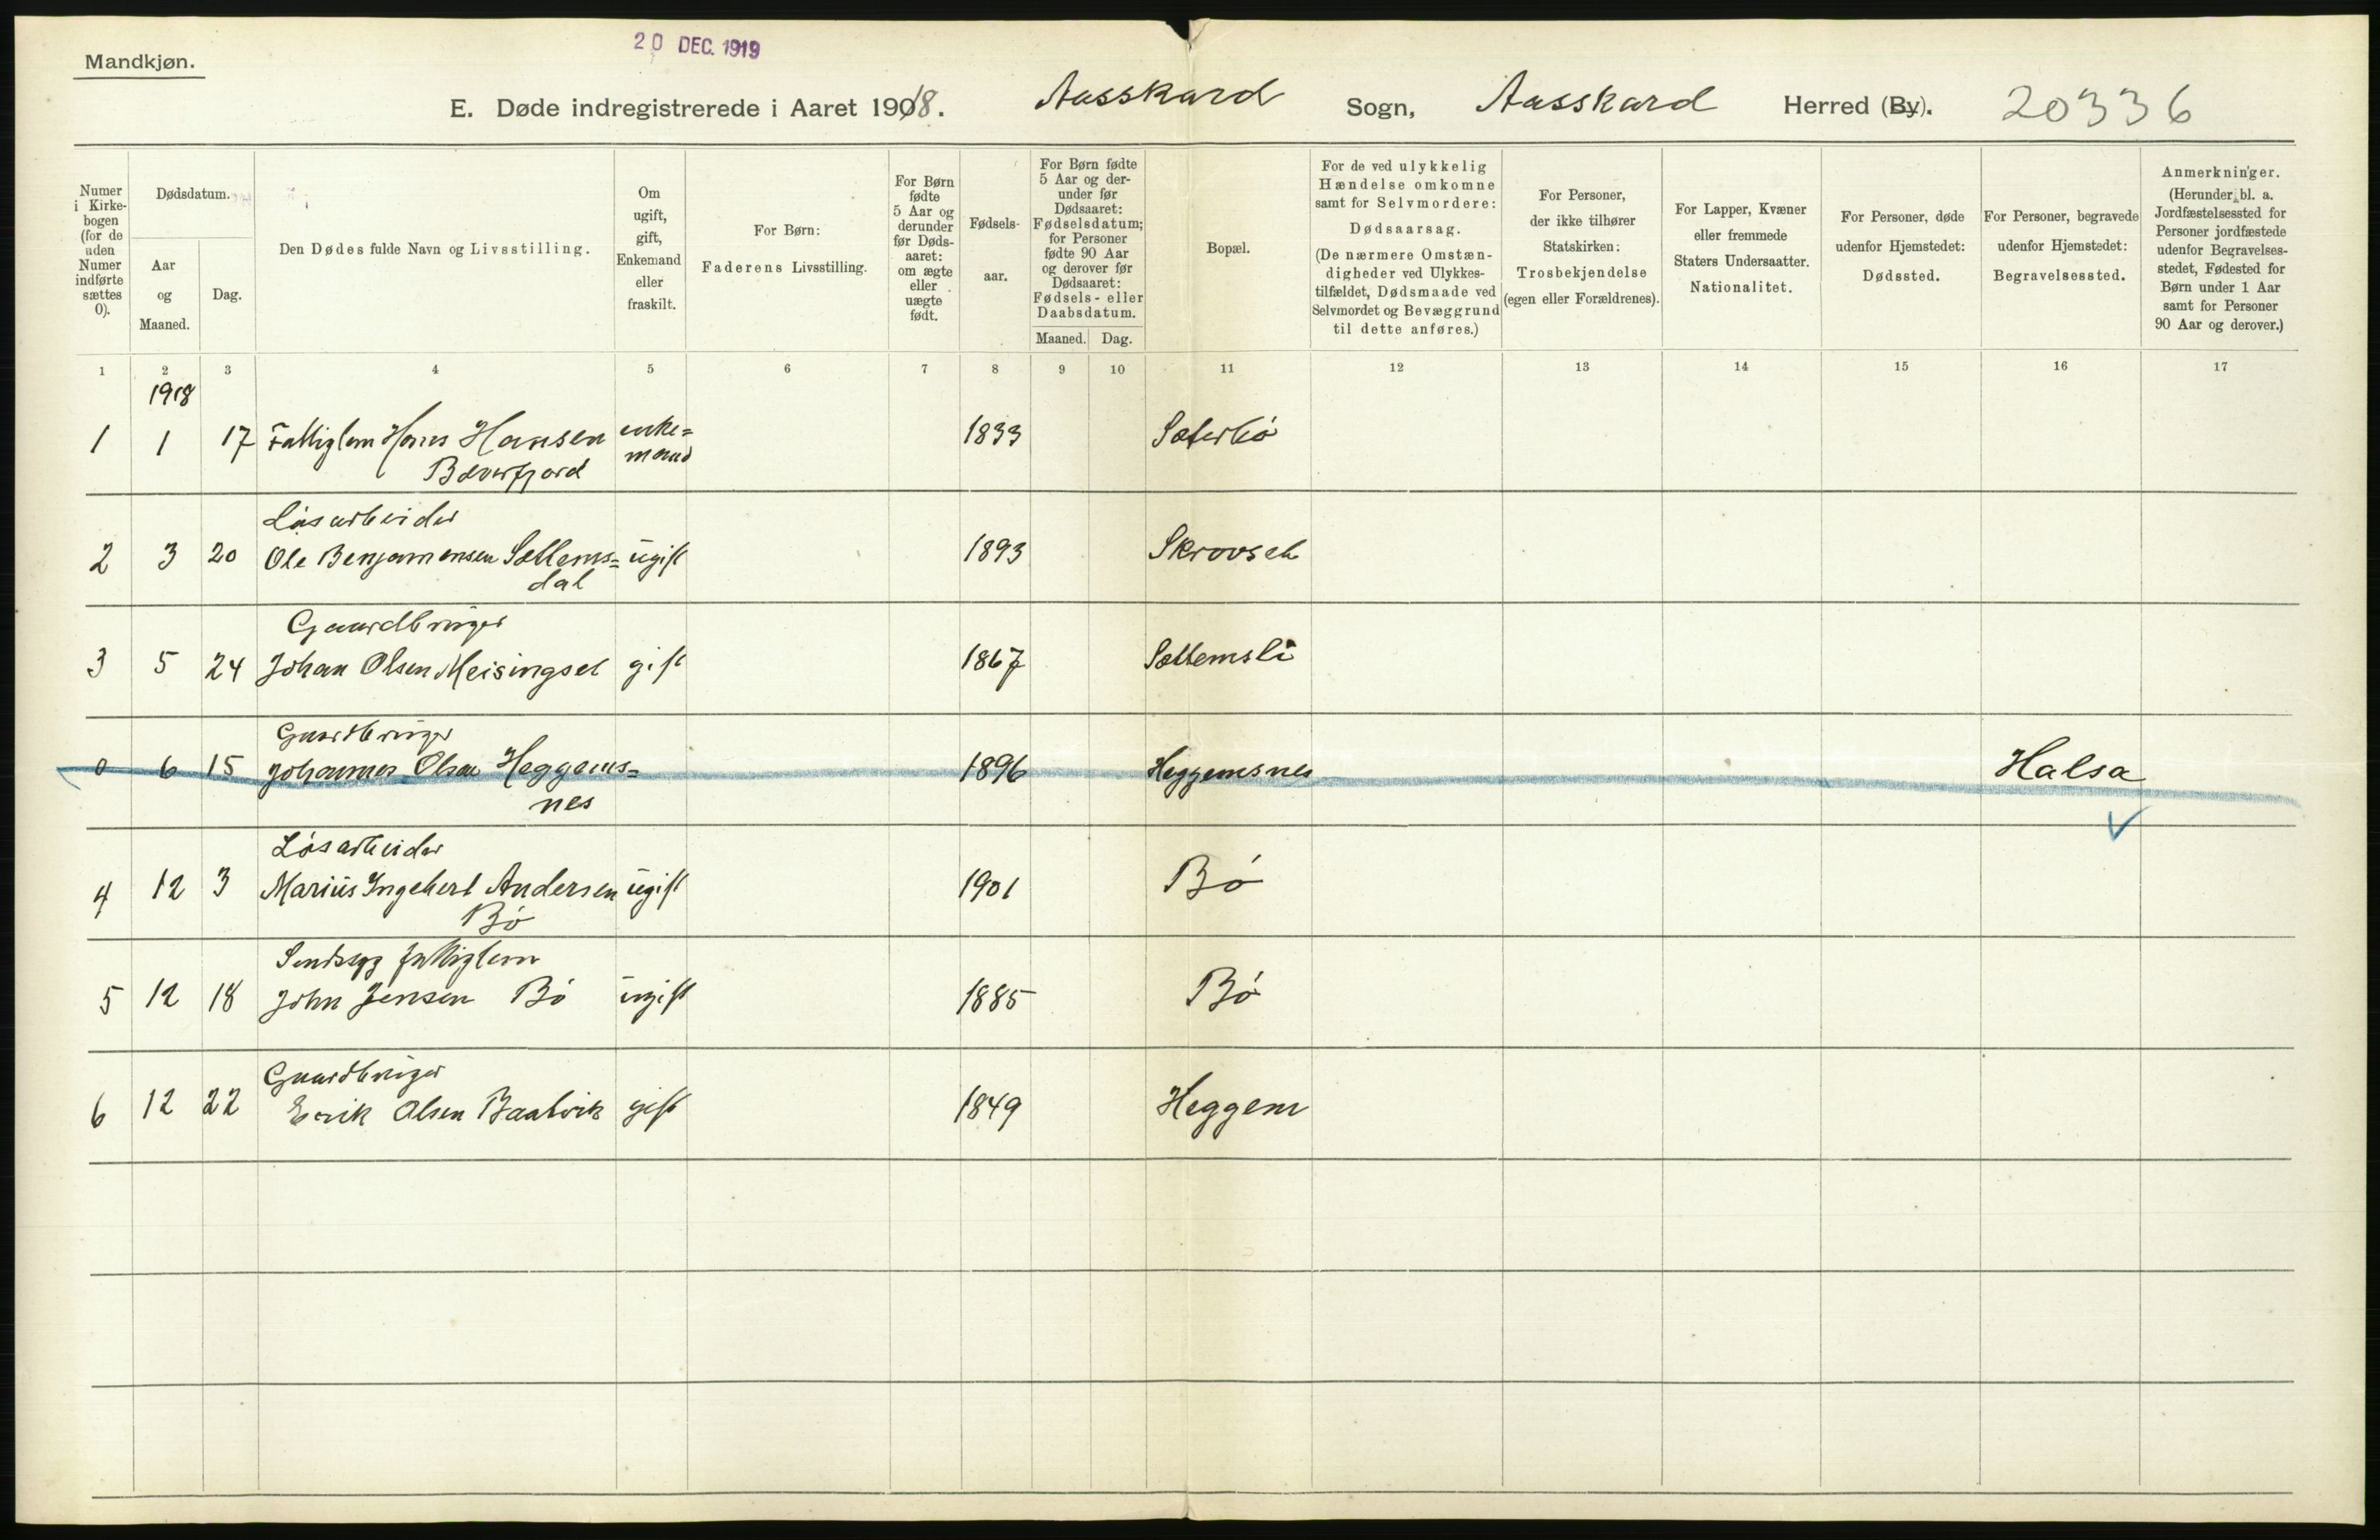 Mandkjøn.
20 DEC. 1919
E. Døde indregistrerede i Aaret 1918. Aasskard Sogn, Aasskard Herred (By). 20336
Numer
i Kirke-
bogen
(for de
uden
Numer
indførte
sættes
0).
Dødsdatum.
Aar
og
Maaned.
Dag.
Den Dødes fulde Navn og Livsstilling.
Om
ugift,
gift,
Enkemand
eller
fraskilt.
For Børn:
Faderens Livsstilling.
For Børn
fødte
5 Aar og
derunder
før Døds-
aaret:
om ægte
eller
uægte
født.
Fødsels-
aar.
For Børn fødte
5 Aar og der-
under før
Dødsaaret:
Fødselsdatum;
for Personer
fødte 90 Aar
og derover før
Dødsaaret:
Fødsels- eller
Daabsdatum.
Maaned. Dag.
Bopæl.
For de ved ulykkelig
Hændelse omkomne
samt for Selvmordere:
Dødsaarsag.
(De nærmere Omstæn-
digheder ved Ulykkes-
tilfældet, Dødsmaade ved
Selvmordet og Bevæggrund
til dette anføres.)
For Personer,
der ikke tilhører
Statskirken:
Trosbekjendelse
(egen eller Forældrenes).
For Lapper, Kvæner
eller fremmede
Staters Undersaatter.
Nationalitet.
For Personer, døde
udenfor Hjemstedet:
Dødssted.
For Personer, begravede
udenfor Hjemstedet:
Begravelsessted.
Anmerkninger.
(Herunder bl. a.
Jordfæstelsessted for
Personer jordfæstede
udenfor Begravelses-
stedet, Fødested for
Børn under 1 Aar
samt for Personer
90 Aar og derover.)
1 2 3 4 5 6 7 8 9 10 11 12 13 14 15 16 17
1918
1 1 17 Fattiglem Hans Hansen enke= 1833 Sæterbø
Bæverfjord mand
Løsarbeider
2 3 20 Ole Benjamensen Settems= ugift 1893 Skrovset
dal
Gaardbruger
3 5 24 Johan Olsen Meisingset gift 1867 Settemsli
Gaardbruger
0 6 15 Johannes Olsen Heggems= 1896 Heggemsnes Halsa
nes
Løsarbeider
4 12 3 Marius Ingebert Andersen ugift 1901 Bø
Bø
Sindssyg fattiglem
5 12 18 John Jensen Bø ugift 1885 Bø
Gaardbruger
6 12 22 Erik Olsen Baalvik gift 1849 Heggem